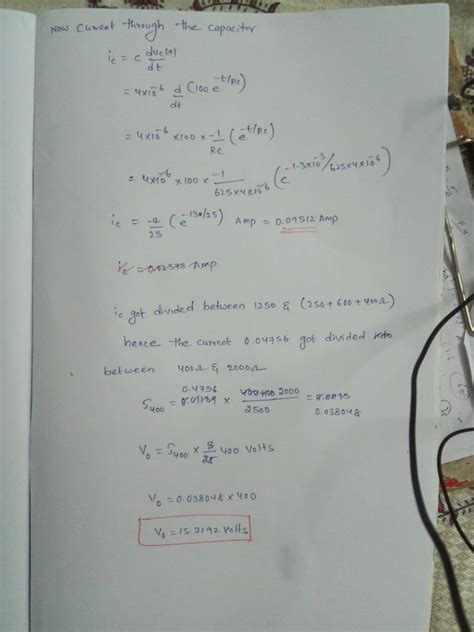 NOW Current through the capacitor
ic = C dvc(t)/dt
= 4x10^-6 d/dt (100 e^-t/RC)
= 4x10^-6 x100 x -1/RC (e^-t/RC)
= 4x10^-6 x100 x -1/625x4x10^-6 (e^-1.3x10^-3/625x4x10^-6)
ic = -4/25 (e^-130/25) Amp = 0.09512 Amp
ic = 0.02378 Amp
ic got divided between 1250 & (250+600+400Ω)
hence the current 0.04756 got divided into
between 400Ω & 2000Ω
0.4756
400 = x 2000/2500 =
0.038048
V0 = 400 x 8/25 400 Volts
V0 = 0.038048 x 400
V0 = 15.2192 Volts